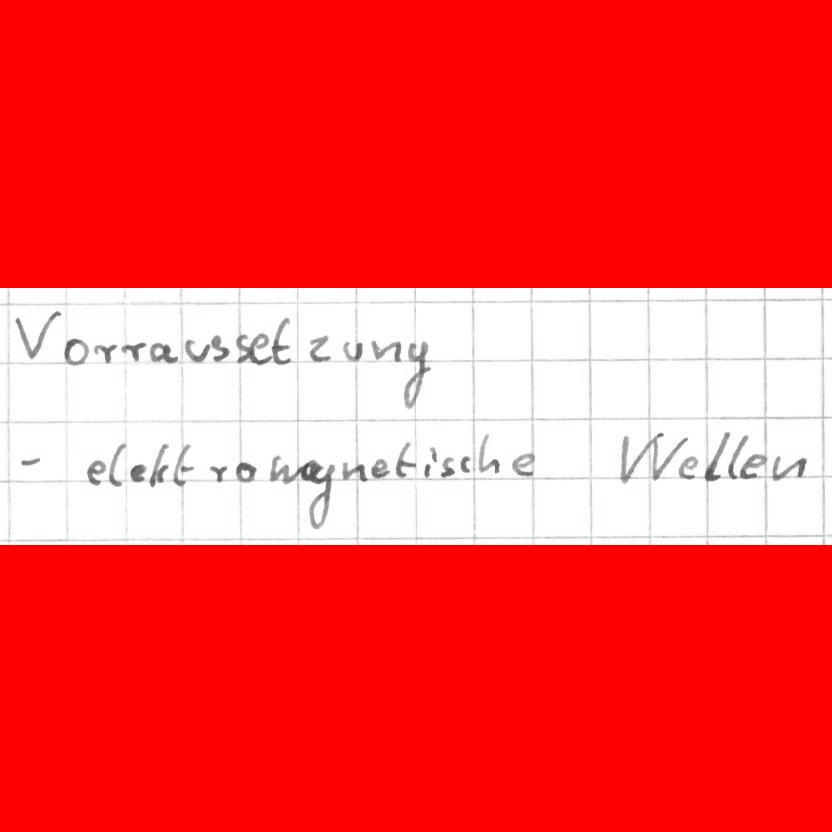 Vorraussetzung
- elektromagnetische Wellen